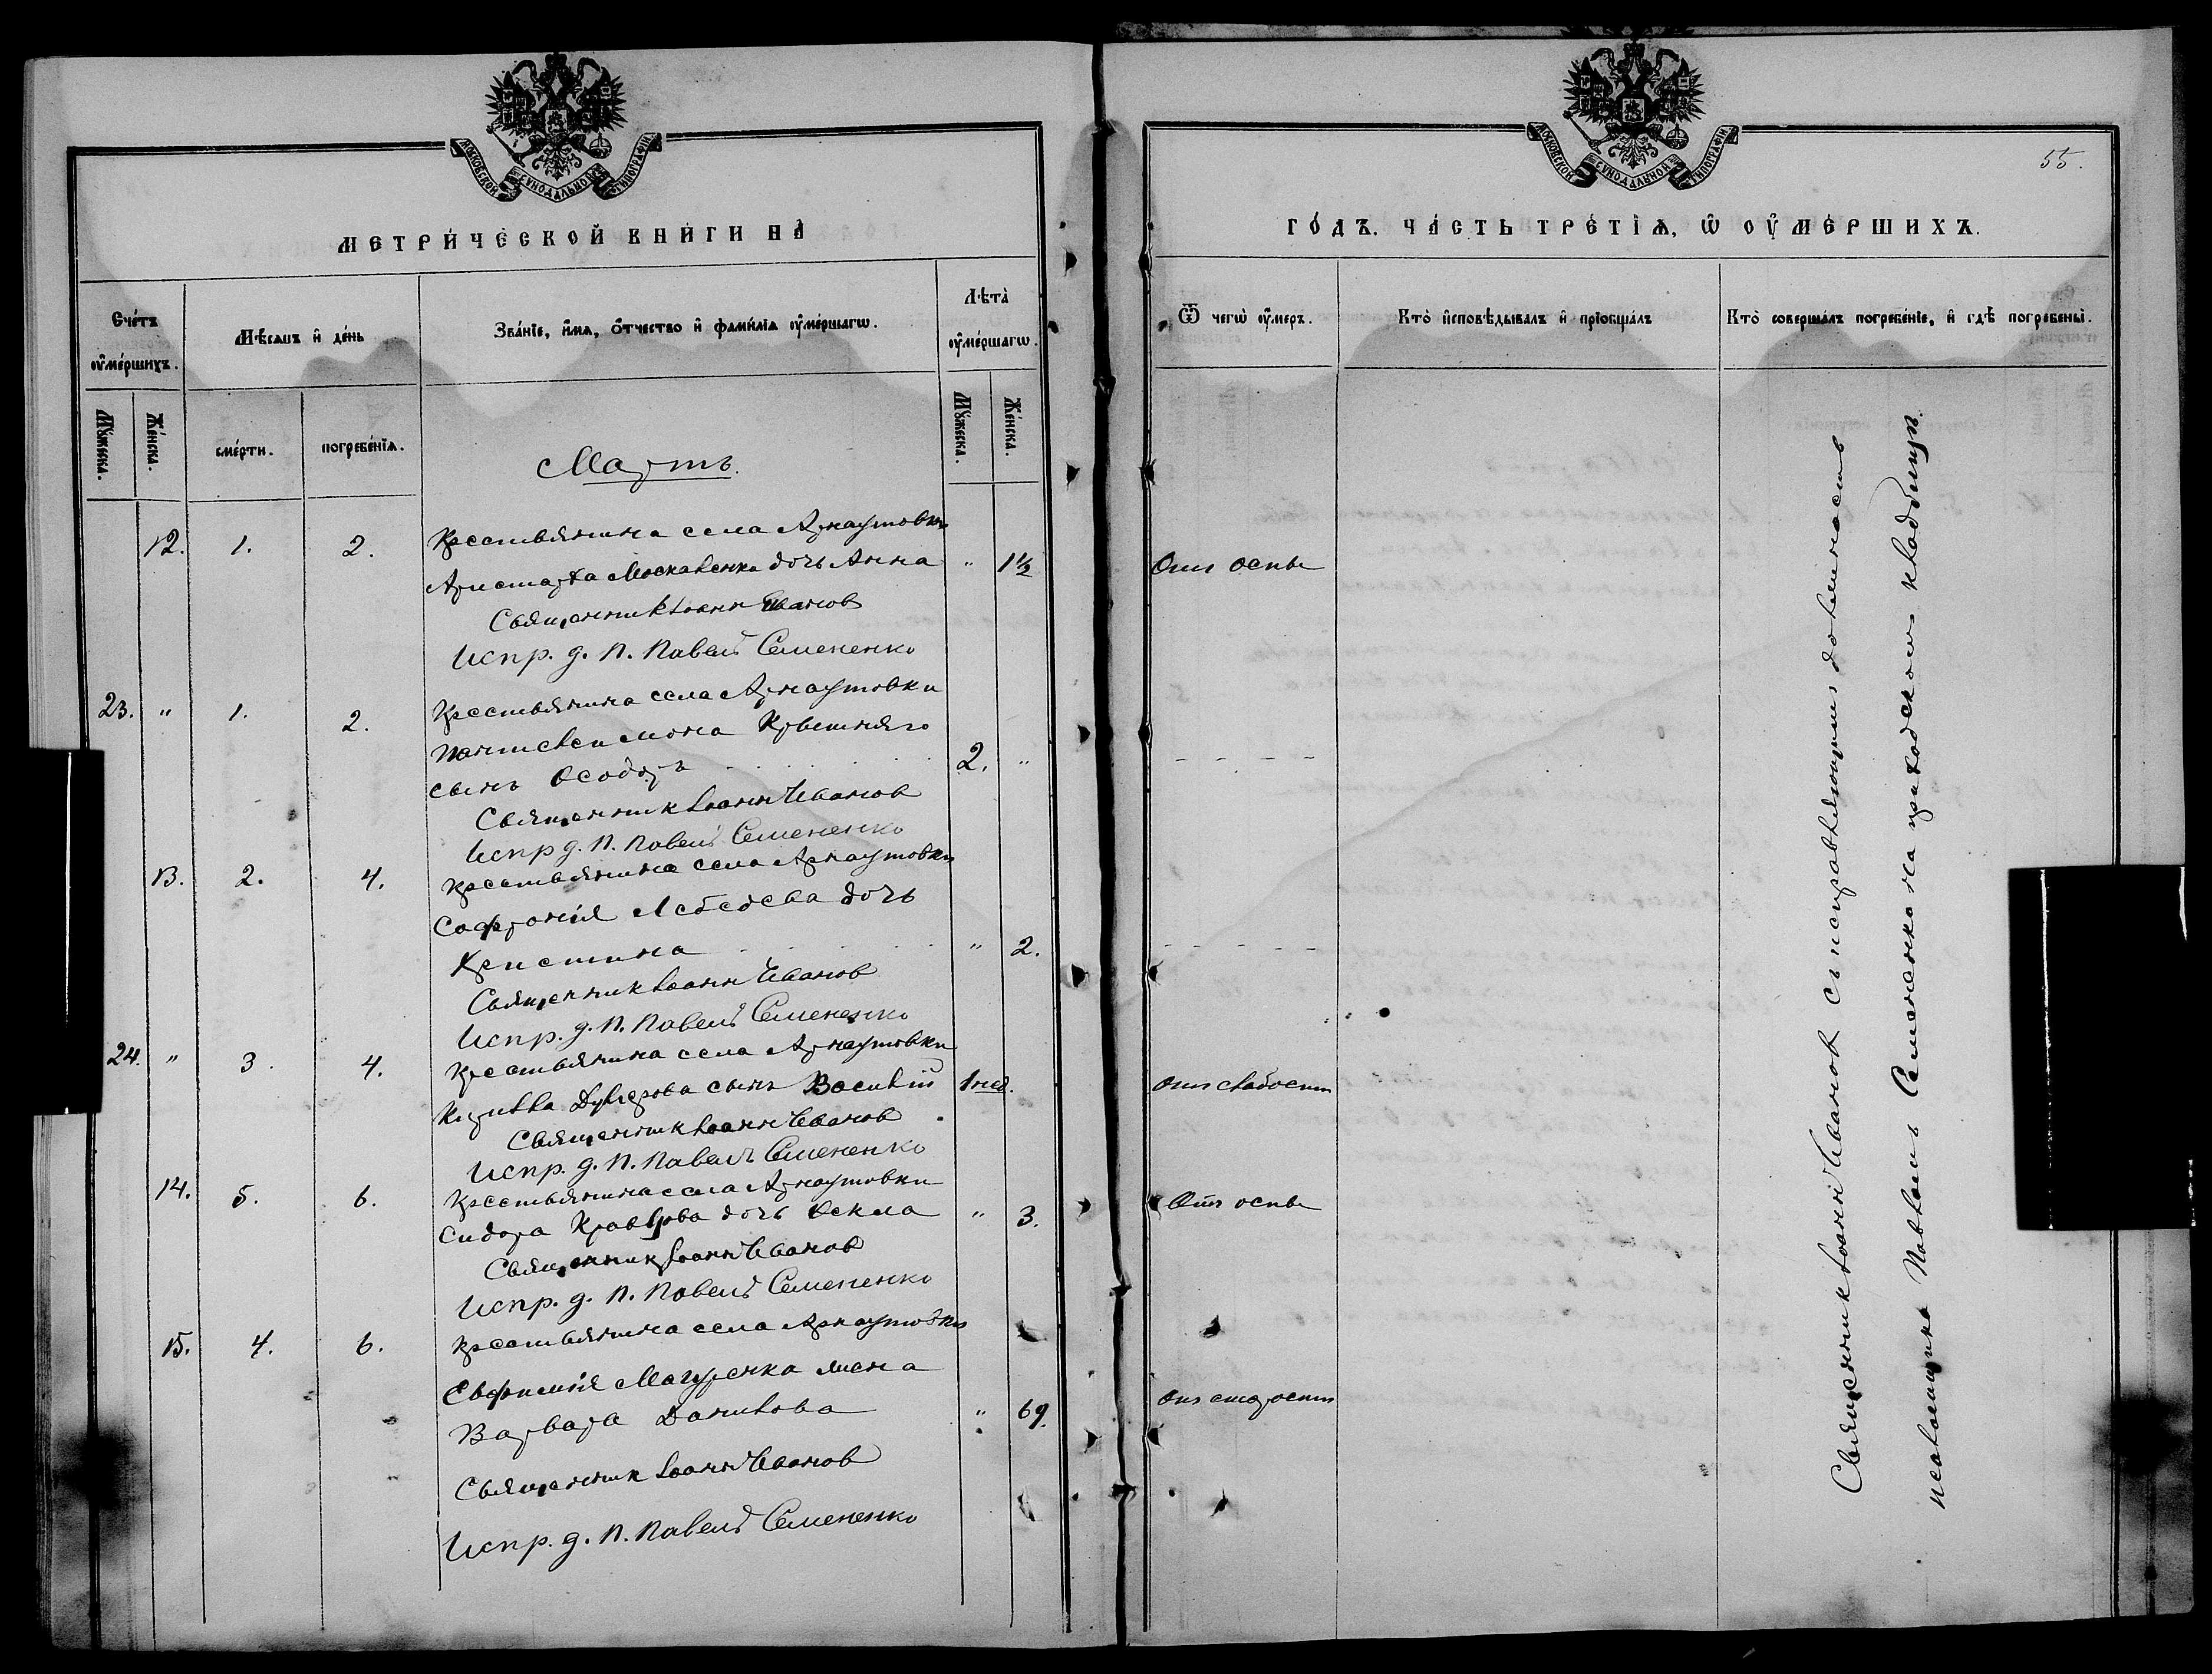 МОСКОВСКОЙ СѴНОДАЛЬНОЙ ТИПОГРАФІИ
МЕТРИ́ЧЕСКОЙ КНИ́ГИ НА̀
Сче́тъ ᲂу҆ме́ршихъ.
Мѣ́сяцъ и҆ де́нь
Зва́нїе, и҆́мѧ, ѻ҆́тчество и҆ фамѝлїѧ ᲂу҆ме́ршагѡ.
Лѣ̑та̀ ᲂу҆ме́ршагѡ.
Мꙋ́жеска.
Же́нска.
сме́рти.
погребе́нїѧ.
Мꙋ́жеска.
Же́нска.
Мартъ.
12. 1. 2. Крестьянина села Арнаутовки
Аристарха Москаленка дочь Анна " 1½
Священникъ Іоаннъ Ивановъ
Испр. д. п. Павелъ Семененко
23. " 1. 2. Крестьянина села Арнаутовки
Пантелеимона
сынъ Ѳеодоръ 2. "
Священникъ Іоаннъ Ивановъ
Испр д. п. Павелъ Семененко
13. 2. 4. Крестьянина села Арнаутовки
Софронія Лебедева дочь
Кристина " 2.
Священникъ Іоаннъ Ивановъ
Испр. д. п. Павелъ Семененко
24. " 3. 4. Крестьянина села Арнаутовки
Кирилла сынъ Василій 1 нед.
Священникъ Іоаннъ Ивановъ
Испр. д. п. Павелъ Семененко
14. 5. 6. Крестьянина села Арнаутовки
Сидора Кравцова дочь Ѳекла " 3.
Священникъ Іоаннъ Ивановъ
Испр. д. п. Павелъ Семененко
15. 4. 6. Крестьянина села Арнаутовки
Евфимія Мазуренка жена
Варвара Данилова " 69.
Священникъ Іоаннъ Ивановъ
Испр. д. п. Павелъ Семененко
МОСКОВСКОЙ СѴНОДАЛЬНОЙ ТИПОГРАФІИ
55.
ГО́ДЪ. ЧА́СТЬ ТРЕ́ТЇѦ, Ѡ҆ ОУ҆МЕ́РШИХЪ.
Ѿ чегѡ̀ ᲂу҆́меръ.
Кто̀ и҆сповѣ́дывалъ и҆ прїѡбща́лъ
Кто̀ соверша́лъ погребе́нїе, и҆ гдѣ̀ погребены̀.
Отъ оспы
- - - - -
- - - - -
Отъ слабости
Отъ оспы
Отъ старости
Священникъ Іоаннъ Ивановъ съ исправляющимъ должность
псаломщика Павломъ Семененко на приходскомъ кладбищѣ.